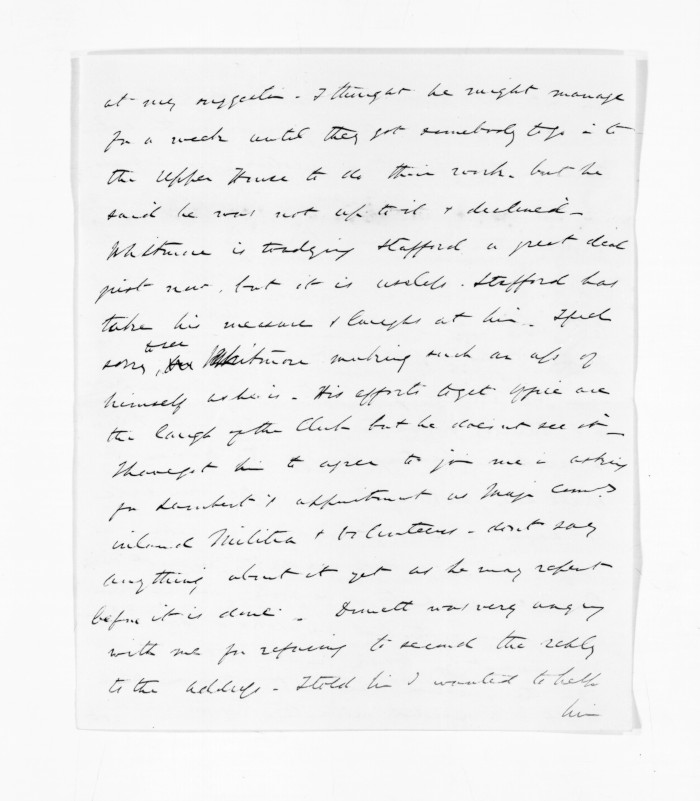 at my suggestion - I thought he might manage
for a week until they got somebody to go in to
the Upper House to do their work - but he
said he was not up to it & declined -
Whitmore is trudging Stafford a great deal
just now, but it is useless. Stafford has
take his measure & laughs at him - I feel
sorry, to see Whitmore making such an ass of
himself as he is - His efforts to get office are
the laugh of the Club but he does n't see it -
I have got him to agree to join me in asking
for Lambert's appointment as Major Comdg
inland Militia & Volunteers - don't say
anything about it yet as he may repent
before it is done. - Domett was very angry
with me for refusing to second the reply
to the address - I told him I wanted to help
him